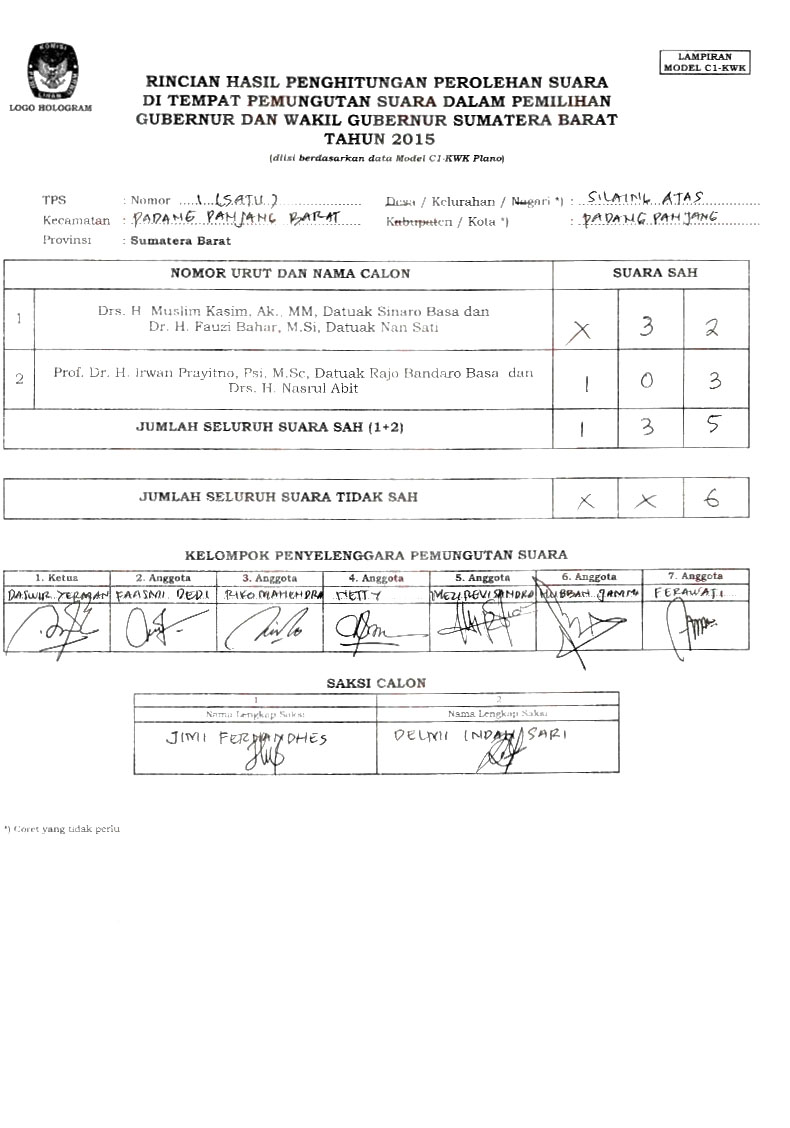 KOMISI
PEMILIHAN UMUM
LOGO HOLOGRAM
LAMPIRAN
MODEL C1-KWK
RINCIAN HASIL PENGHITUNGAN PEROLEHAN SUARA
DI TEMPAT PEMUNGUTAN SUARA DALAM PEMILIHAN
GUBERNUR DAN WAKIL GUBERNUR SUMATERA BARAT
TAHUN 2015
(diisi berdasarkan data Model C1-KWK Plano)
TPS : Nomor 1 (SATU) Desa / Kelurahan / Nagari *) : SILAING ATAS
Kecamatan : PADANG PANJANG BARAT Kabupaten / Kota *) : PADANG PANJANG
Provinsi : Sumatera Barat
NOMOR URUT DAN NAMA CALON SUARA SAH
1 Drs. H. Muslim Kasim, Ak., MM, Datuak Sinaro Basa dan
Dr. H. Fauzi Bahar, M.Si, Datuak Nan Sati X 3 2
2 Prof. Dr. H. Irwan Prayitno, Psi, M.Sc, Datuak Rajo Bandaro Basa dan
Drs. H. Nasrul Abit 1 0 3
JUMLAH SELURUH SUARA SAH (1+2) 1 3 5
JUMLAH SELURUH SUARA TIDAK SAH X X 6
KELOMPOK PENYELENGGARA PEMUNGUTAN SUARA
1. Ketua 2. Anggota 3. Anggota 4. Anggota 5. Anggota 6. Anggota 7. Anggota
DEDI RIKO MAHENDRA NETTY FERAWATI
SAKSI CALON
1 2
Nama Lengkap Saksi Nama Lengkap Saksi
JIMI FERNANDHES DELMI INDAH SARI
*) Coret yang tidak perlu